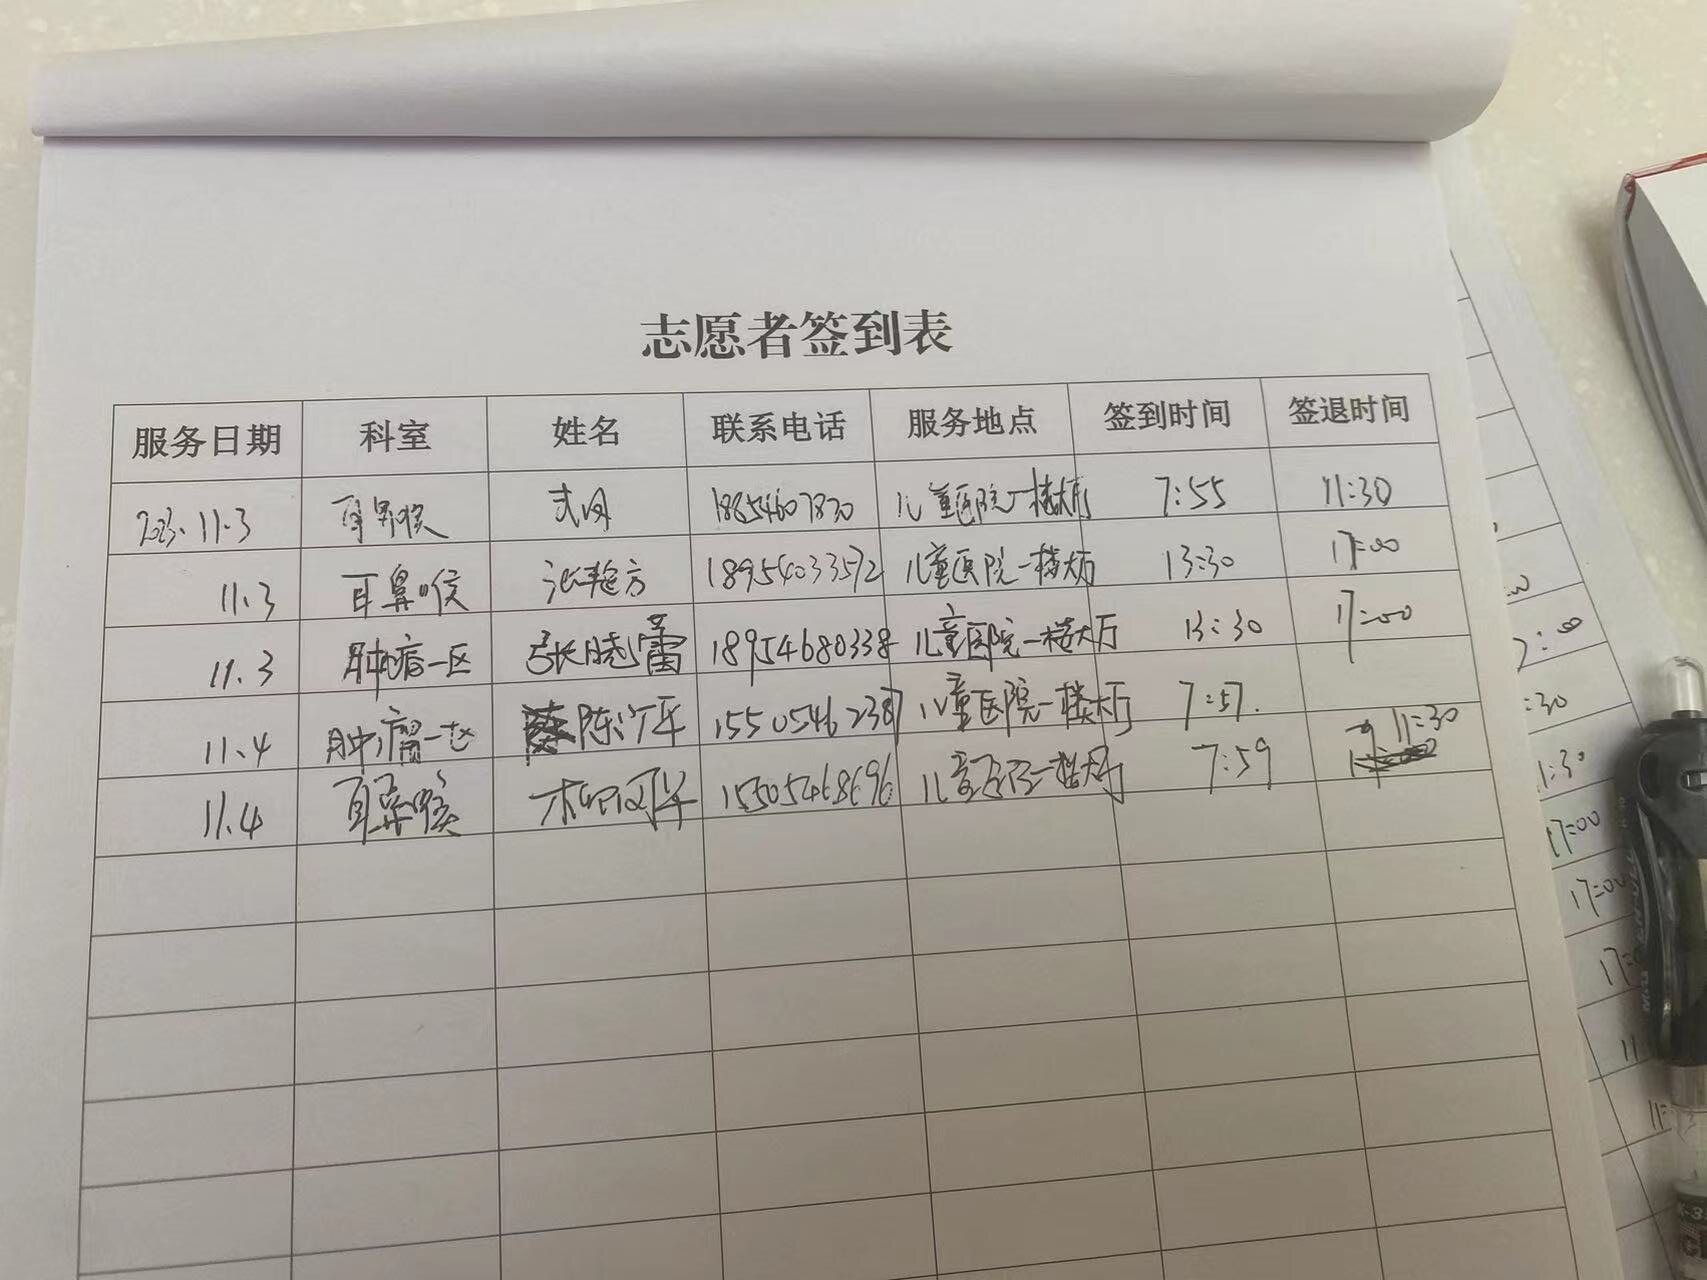 志愿者签到表
服务日期 科室 姓名 联系电话 服务地点 签到时间 签退时间
2023.11.3 耳鼻喉 18854607830 儿童医院一楼大厅 7:55 11:30
11.3 耳鼻喉 18954033572 儿童医院一楼大厅 13:30 17:00
11.3 肿瘤一区 张晓蕾 18954680338 儿童医院一楼大厅 13:30 17:00
11.4 肿瘤一区 陈 15505462387 儿童医院一楼大厅 7:57.
11.4 耳鼻喉 15505468696 儿童医院一楼大厅 7:59 11:30
:30
1:30
17:00
17:00